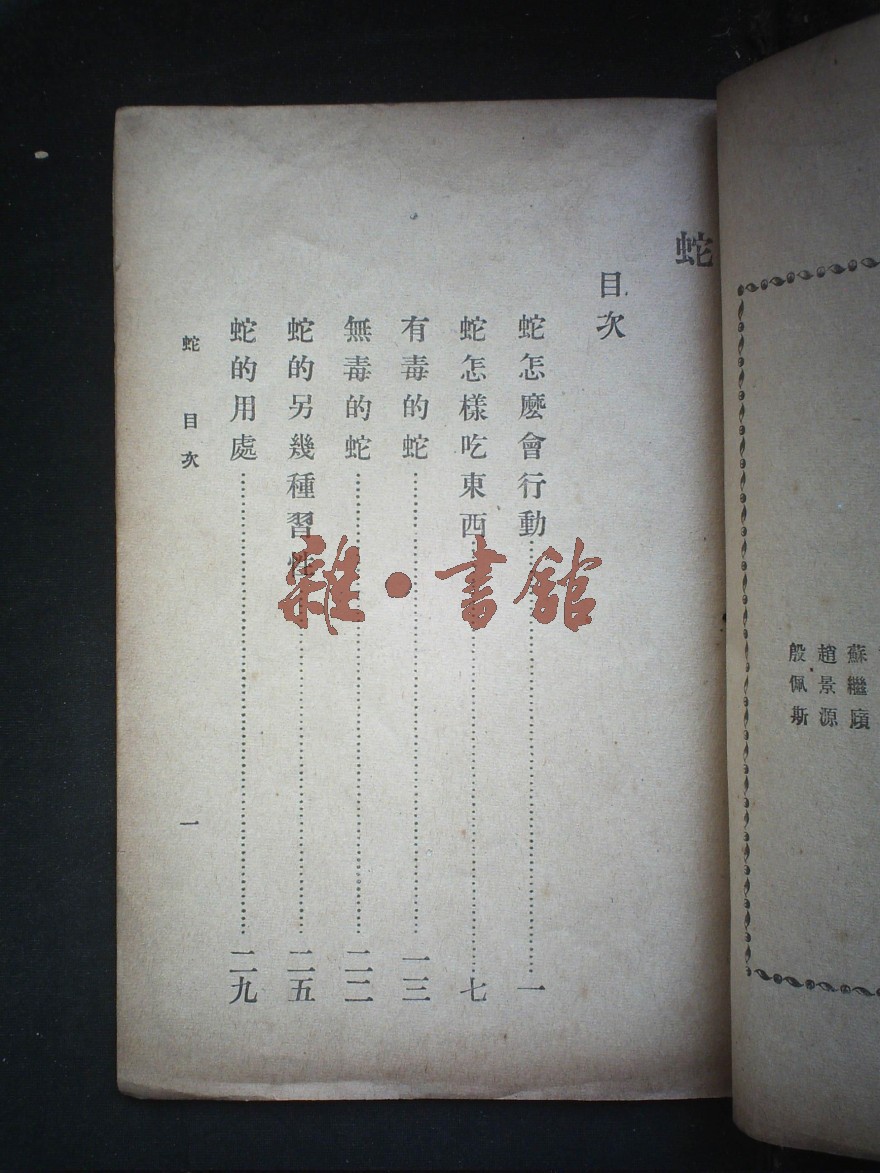 蘇繼廎
趙景源
殷佩斯
蛇
目次
蛇怎麽會行動……一
蛇怎樣吃東西……七
有毒的蛇……一三
無毒的蛇……二二
蛇的另幾種習性……二五
蛇的用處……二九
蛇 目次 一
雜·書館